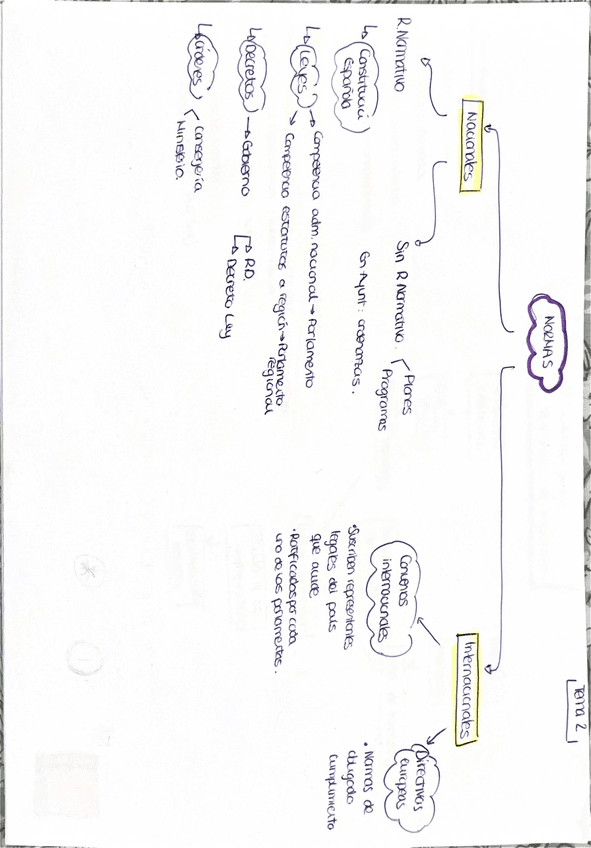 Tema 2
NORMAS
Nacionales
R. Normativo
↳ Constitució
Española
↳ Leyes → Competencia adm. nacional → Parlamento
→ Competencia estatutos a región → Parlamento
regional
↳ Decretos → Gobierno
→ R.D.
→ Decreto Ley
↳ Órdenes
Consejería
Ministerio.
Sin R Normativo.
Planes
Programas
En Ayunt: ordenanzas.
Internacionales
Convenios
internacionales
• Suscriben representantes
legales del país
que acude
• Ratificados por cada
uno de los parlamentos.
Directivas
europeas
• Normas de
obligado
cumplimiento